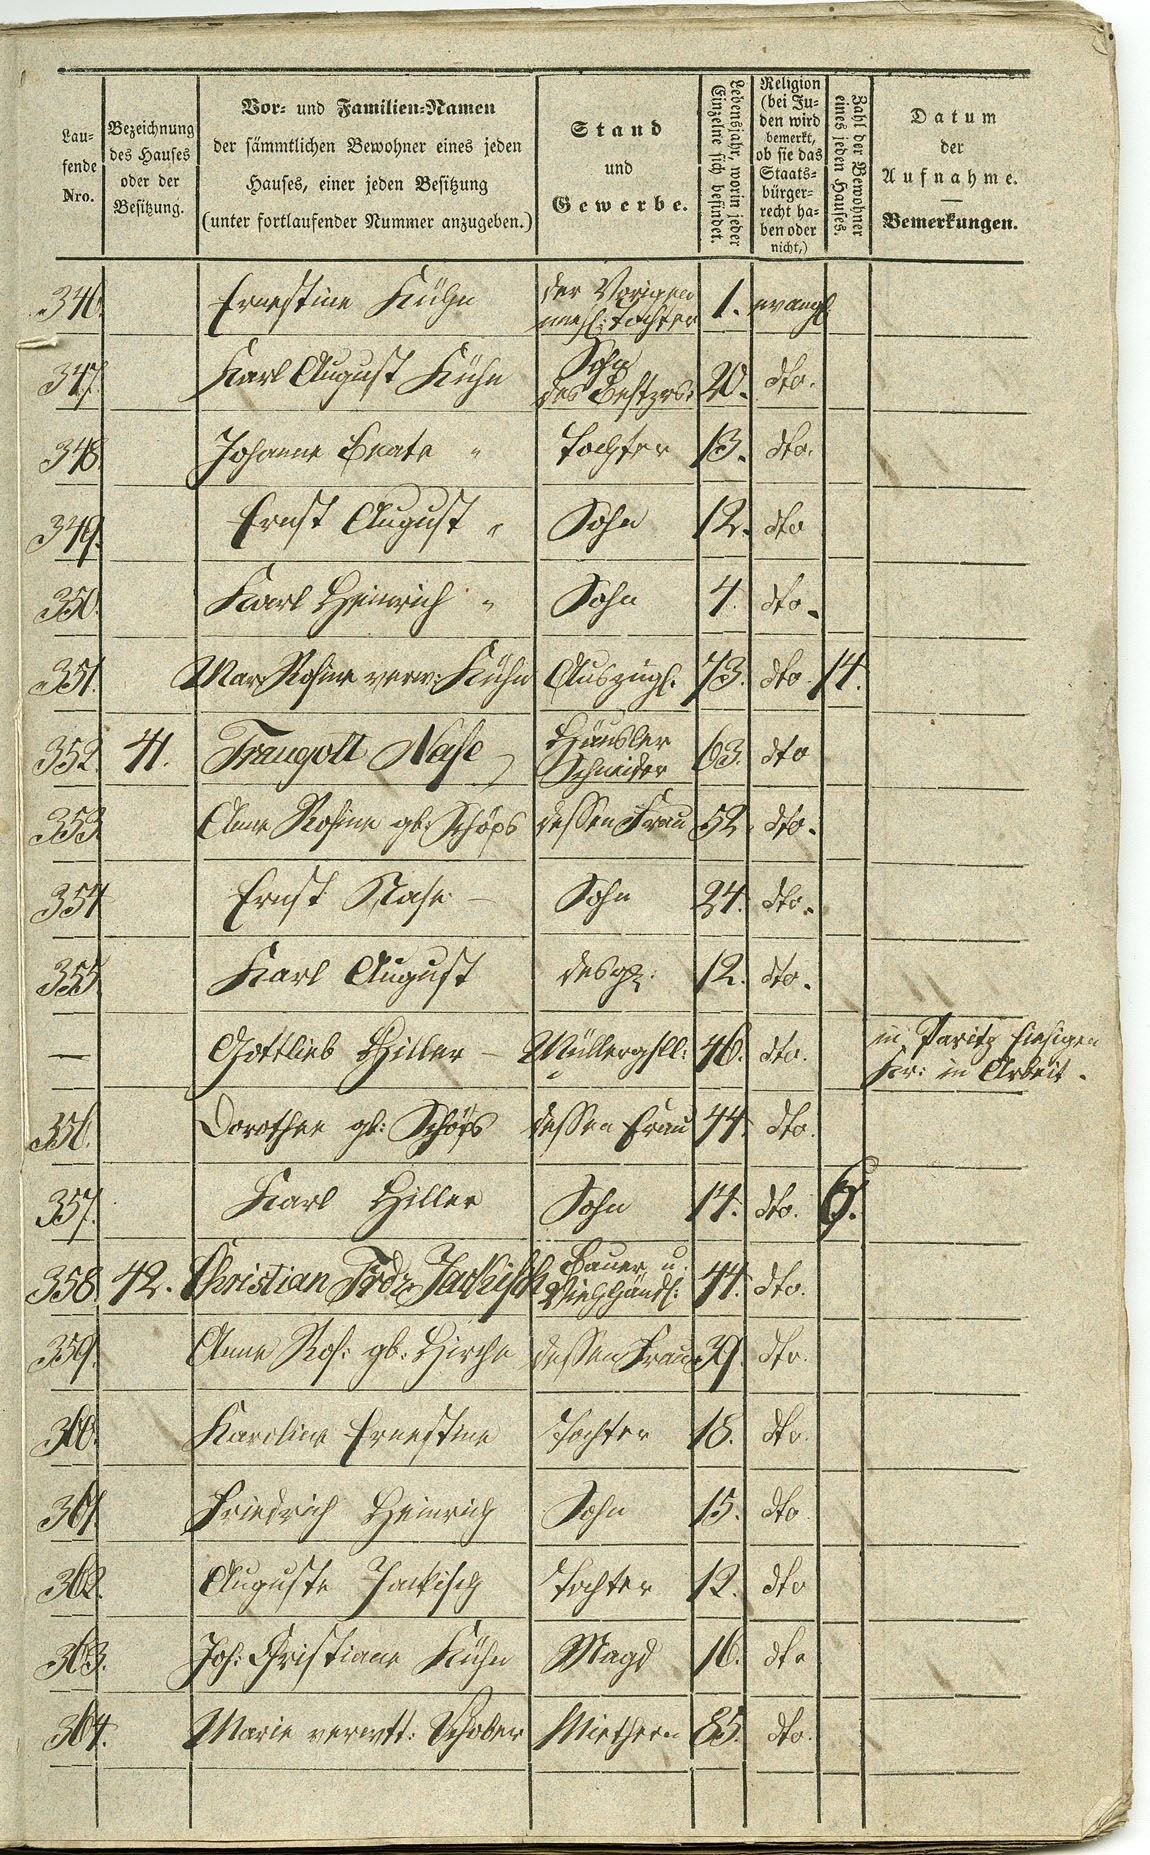 Lau-
fende
Nro.
Bezeichnung
des Hauses
oder der
Besitzung.
Vor- und Familien-Namen
der sämmtlichen Bewohner eines jeden
Hauses, einer jeden Besitzung
(unter fortlaufender Nummer anzugeben.)
Stand
und
Gewerbe.
Lebensjahr, worin jeder
Einzelne sich befindet.
Religion
(bei Ju-
den wird
bemerkt,
ob sie das
Staats-
bürger-
recht ha-
ben oder
nicht,)
Zahl der Bewohner
eines jeden Hauses.
Datum
der
Aufnahme.
Bemerkungen.
346. Ernestine Kühn der Vorigen
Tochter 1. evangl.
347. Karl August Kühn Sohn
des Besitzers: 20. dto.
348. Johanne Beate " Tochter 13. dto.
349. Ernst August " Sohn 12. dto
350. Karl Heinrich " Sohn 4. dto.
351. Mar. Rosine verw: Kühn Auszügl. 73. dto. 14.
352. 41. Traugott Nase Häusler
Schneider 63. dto
353 Anne Rosine gb: Schöps dessen Frau 52. dto.
354 Ernst Nase Sohn 24. dto.
355. Karl August desgl. 12. dto.
— Gottlieb Hiller — Müllergsll: 46. dto. in Paritz hiesigen
Kr: in Arbeit.
356. Dorothee gb: Schöps dessen Frau 44. dto.
357. Karl Hiller Sohn 14. dto. 6.
358. 42. Christian Frdr Jackisch Bauer u.
Viehhändl: 44. dto.
359. Anne Ros: gb: Hirche dessen Frau 39. dto.
360. Karoline Ernestine Tochter 18. dto.
361. Friedrich Heinrich Sohn 15. dto
362. Auguste Jackisch Tochter 12. dto
363. Joh: Christiane Kühn Magd 16. dto
364. Marie verwtt: Schober Mietherin 85. dto.